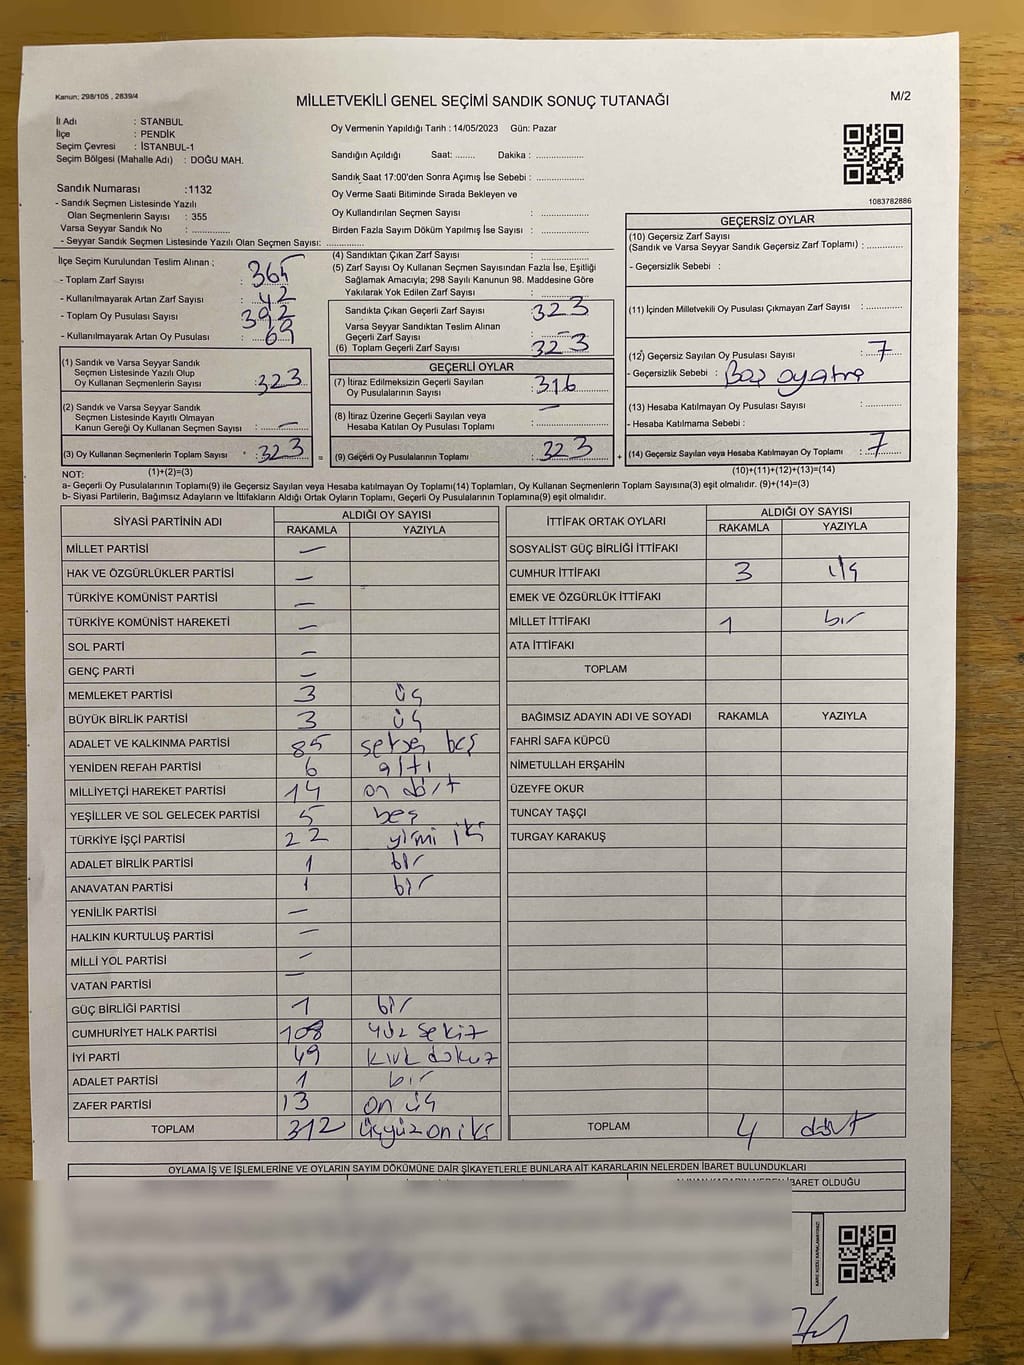 Kanun; 298/105 , 2839/4
MİLLETVEKİLİ GENEL SEÇİMİ SANDIK SONUÇ TUTANAĞI
M/2
İl Adı : STANBUL
İlçe : PENDİK
Seçim Çevresi : İSTANBUL-1
Seçim Bölgesi (Mahalle Adı) : DOĞU MAH.
Oy Vermenin Yapıldığı Tarih : 14/05/2023 Gün: Pazar
Sandığın Açıldığı Saat: ........ Dakika : ..................
Sandık Saat 17:00'den Sonra Açımış İse Sebebi : ..................
Oy Verme Saati Bitiminde Sırada Bekleyen ve
Oy Kullandırılan Seçmen Sayısı : ..................
Birden Fazla Sayım Döküm Yapılmış İse Sayısı : ..................
1083782886
Sandık Numarası :1132
- Sandık Seçmen Listesinde Yazılı
Olan Seçmenlerin Sayısı : 355
Varsa Seyyar Sandık No : ..................
- Seyyar Sandık Seçmen Listesinde Yazılı Olan Seçmen Sayısı: ..................
İlçe Seçim Kurulundan Teslim Alınan ;
- Toplam Zarf Sayısı : 365
- Kullanılmayarak Artan Zarf Sayısı : 42
- Toplam Oy Pusulası Sayısı : 392
- Kullanılmayarak Artan Oy Pusulası : 69
(1) Sandık ve Varsa Seyyar Sandık
Seçmen Listesinde Yazılı Olup
Oy Kullanan Seçmenlerin Sayısı : 323
(2) Sandık ve Varsa Seyyar Sandık
Seçmen Listesinde Kayıtlı Olmayan
Kanun Gereği Oy Kullanan Seçmen Sayısı : —
(3) Oy Kullanan Seçmenlerin Toplam Sayısı : 323 =
(4) Sandıktan Çıkan Zarf Sayısı : ..................
(5) Zarf Sayısı Oy Kullanan Seçmen Sayısından Fazla İse, Eşitliği
Sağlamak Amacıyla; 298 Sayılı Kanunun 98. Maddesine Göre
Yakılarak Yok Edilen Zarf Sayısı : ..................
Sandıkta Çıkan Geçerli Zarf Sayısı : 323
Varsa Seyyar Sandıktan Teslim Alınan
Geçerli Zarf Sayısı : —
(6) Toplam Geçerli Zarf Sayısı : 323
GEÇERLİ OYLAR
(7) İtiraz Edilmeksizin Geçerli Sayılan
Oy Pusulalarının Sayısı : 316
(8) İtiraz Üzerine Geçerli Sayılan veya
Hesaba Katılan Oy Pusulası Toplamı : —
(9) Geçerli Oy Pusulalarının Toplamı : 323 +
GEÇERSİZ OYLAR
(10) Geçersiz Zarf Sayısı
(Sandık ve Varsa Seyyar Sandık Geçersiz Zarf Toplamı) : ............
- Geçersizlik Sebebi :
(11) İçinden Milletvekili Oy Pusulası Çıkmayan Zarf Sayısı : ............
(12) Geçersiz Sayılan Oy Pusulası Sayısı : 7
- Geçersizlik Sebebi :
(13) Hesaba Katılmayan Oy Pusulası Sayısı : ............
- Hesaba Katılmama Sebebi :
(14) Geçersiz Sayılan veya Hesaba Katılmayan Oy Toplamı : 7
NOT: (1)+(2)=(3) (10)+(11)+(12)+(13)=(14)
a- Geçerli Oy Pusulalarının Toplamı(9) ile Geçersiz Sayılan veya Hesaba katılmayan Oy Toplamı(14) Toplamları, Oy Kullanan Seçmenlerin Toplam Sayısına(3) eşit olmalıdır. (9)+(14)=(3)
b- Siyasi Partilerin, Bağımsız Adayların ve İttifakların Aldığı Ortak Oyların Toplamı, Geçerli Oy Pusulalarının Toplamına(9) eşit olmalıdır.
SİYASİ PARTİNİN ADI ALDIĞI OY SAYISI
RAKAMLA YAZIYLA
MİLLET PARTİSİ —
HAK VE ÖZGÜRLÜKLER PARTİSİ —
TÜRKİYE KOMÜNİST PARTİSİ —
TÜRKİYE KOMÜNİST HAREKETİ —
SOL PARTİ —
GENÇ PARTİ —
MEMLEKET PARTİSİ 3 üç
BÜYÜK BİRLİK PARTİSİ 3 üç
ADALET VE KALKINMA PARTİSİ 85 seksen beş
YENİDEN REFAH PARTİSİ 6 altı
MİLLİYETÇİ HAREKET PARTİSİ 14 on dört
YEŞİLLER VE SOL GELECEK PARTİSİ 5 beş
TÜRKİYE İŞÇİ PARTİSİ 22 yirmi iki
ADALET BİRLİK PARTİSİ 1 bir
ANAVATAN PARTİSİ 1 bir
YENİLİK PARTİSİ —
HALKIN KURTULUŞ PARTİSİ —
MİLLİ YOL PARTİSİ —
VATAN PARTİSİ —
GÜÇ BİRLİĞİ PARTİSİ 1 bir
CUMHURİYET HALK PARTİSİ 108 yüz sekiz
İYİ PARTİ 49 kırk dokuz
ADALET PARTİSİ 1 bir
ZAFER PARTİSİ 13 on üç
TOPLAM 312 üçyüz on iki
İTTİFAK ORTAK OYLARI ALDIĞI OY SAYISI
RAKAMLA YAZIYLA
SOSYALİST GÜÇ BİRLİĞİ İTTİFAKI
CUMHUR İTTİFAKI 3 üç
EMEK VE ÖZGÜRLÜK İTTİFAKI
MİLLET İTTİFAKI 1 bir
ATA İTTİFAKI
TOPLAM
BAĞIMSIZ ADAYIN ADI VE SOYADI RAKAMLA YAZIYLA
FAHRİ SAFA KÜPCÜ
NİMETULLAH ERŞAHİN
ÜZEYFE OKUR
TUNCAY TAŞÇI
TURGAY KARAKUŞ
TOPLAM 4 dört
OYLAMA İŞ VE İŞLEMLERİNE VE OYLARIN SAYIM DÖKÜMÜNE DAİR ŞİKAYETLERLE BUNLARA AİT KARARLARIN NELERDEN İBARET BULUNDUKLARI
OLDUĞU